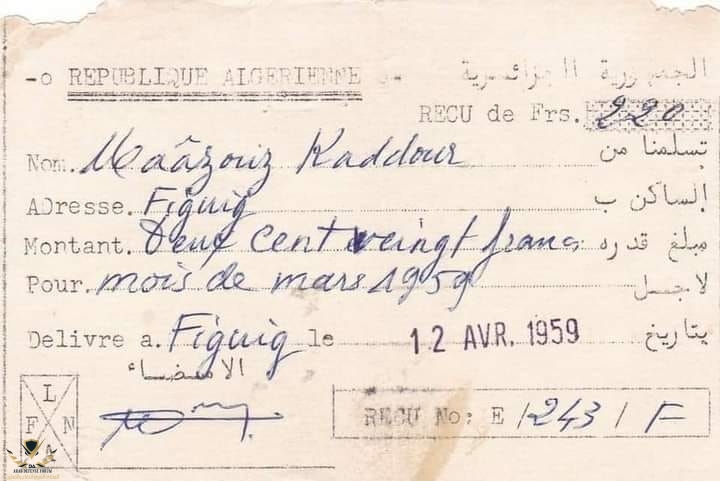 -o REPUBLIQUE ALGERIENNE o- الجمهورية الجزائرية
RECU de Frs. 220
Nom. Maâzouiz Kaddour تسلمنا من
ADresse. Figuig الساكن ب
Montant. Deux cent veingt franc مبلغ قدره
Pour. mois de mars 1959 لاجل
Delivre a. Figuig le 12 AVR. 1959 بتاريخ
الامضاء
L
F N
RECU No: E /243/ F
ARAB DEFENSE FORUM